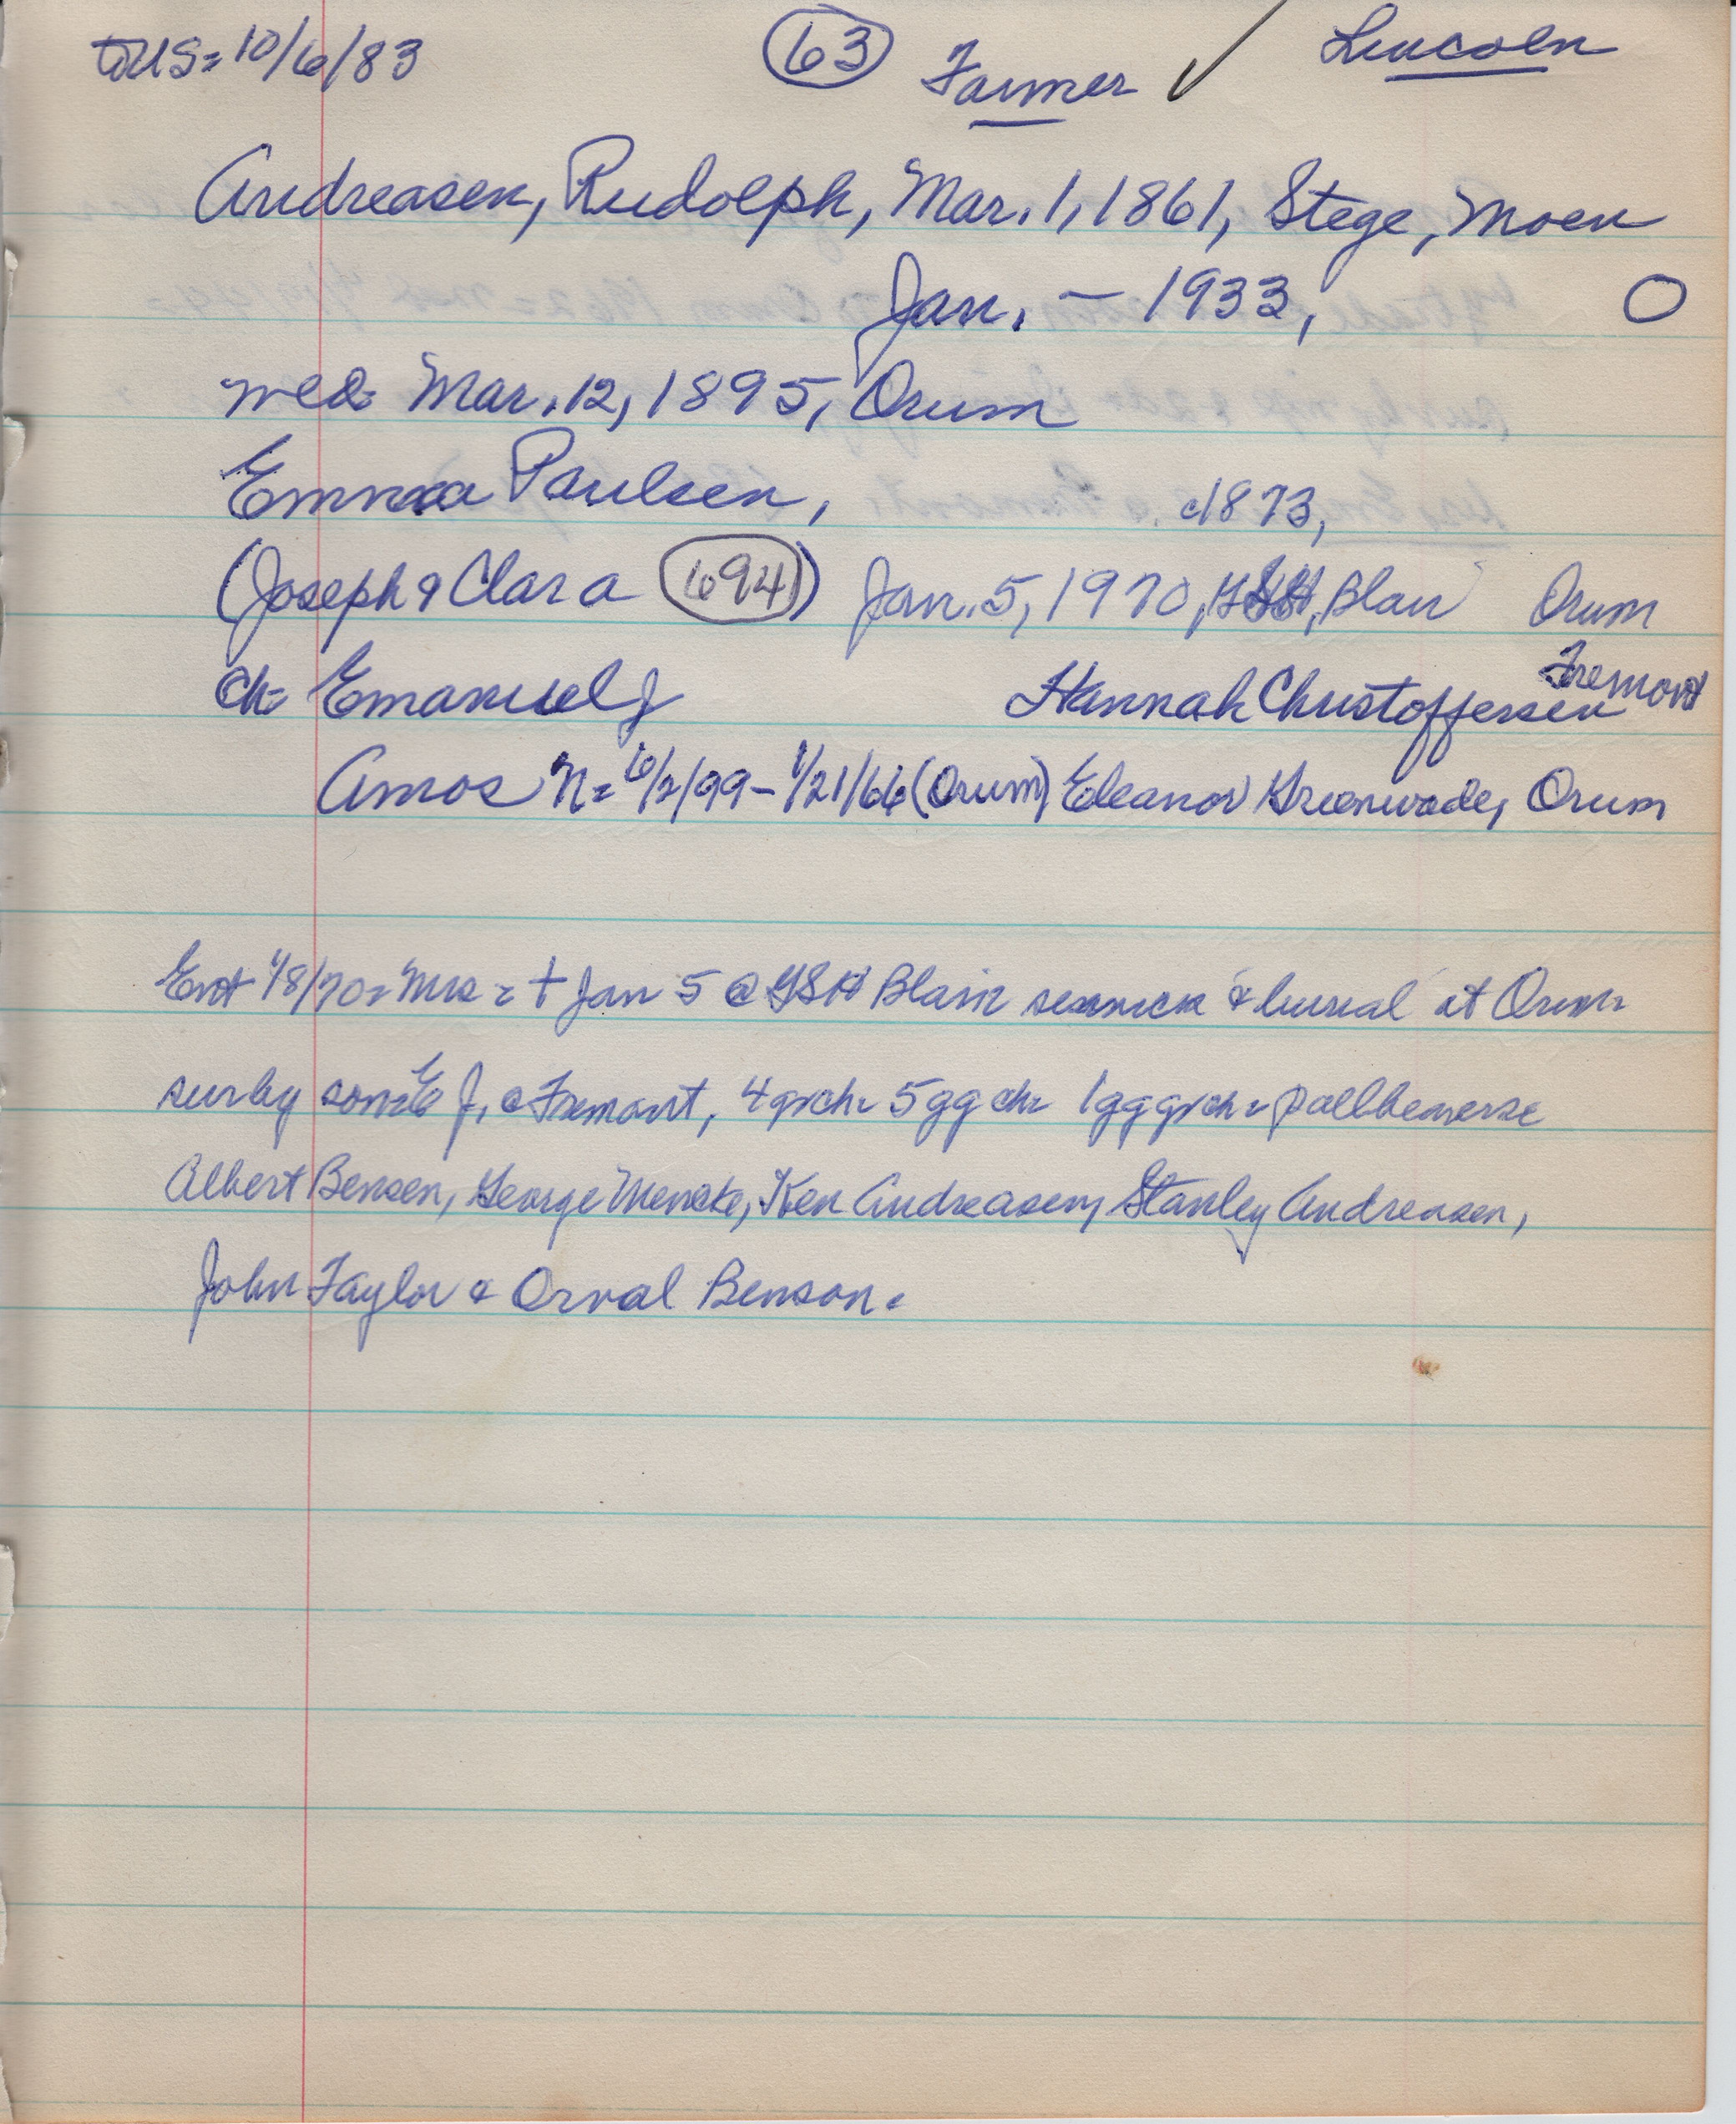 TUS= 10/6/83 63 Farmer ✓ Lincoln
Andreasen, Rudolph, Mar. 1, 1861, Stege, Moen
Jan. – 1933, O
wed= Mar. 12, 1895, Orum
Emma Paulsen, c1873,
(Joseph & Clara 694) Jan. 5, 1970, GSH, Blair Orum
ch= Emanuel J Hannah Christoffersen Fremont
Amos N= 6/2/99 – 1/21/66 (Orum) Eleanor Greenwade, Orum
Ent 1/8/70= Mrs = † Jan 5 @ GSH Blair service & burial at Orum=
surby son=E J. @ Fremont, 4 grch= 5 gg ch= 1 ggg rch = pallbearers=
Albert Bensen, George Mencke, Ken Andreasen, Stanley Andreasen,
John Taylor & Orval Benson.